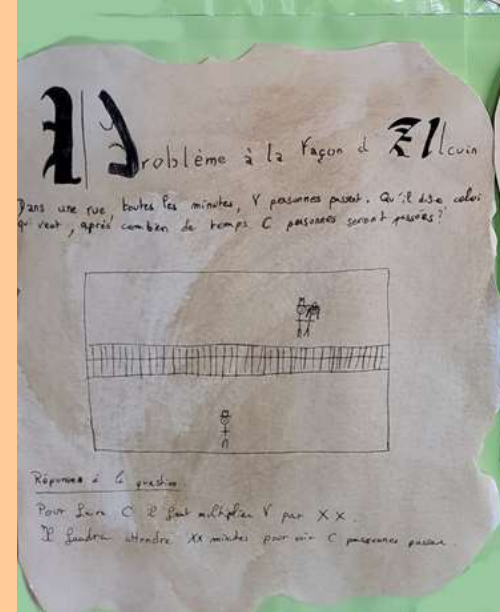 Problème à la Façon d Alcuin
Dans une rue, toutes les minutes, V personnes passent. Qu'il dise celui
qui veut, après combien de temps C personnes seront passées?
Réponse à la question
Pour faire C il faut multiplier V par XX.
Il faudra attendre XX minutes pour voir C personnes passer.